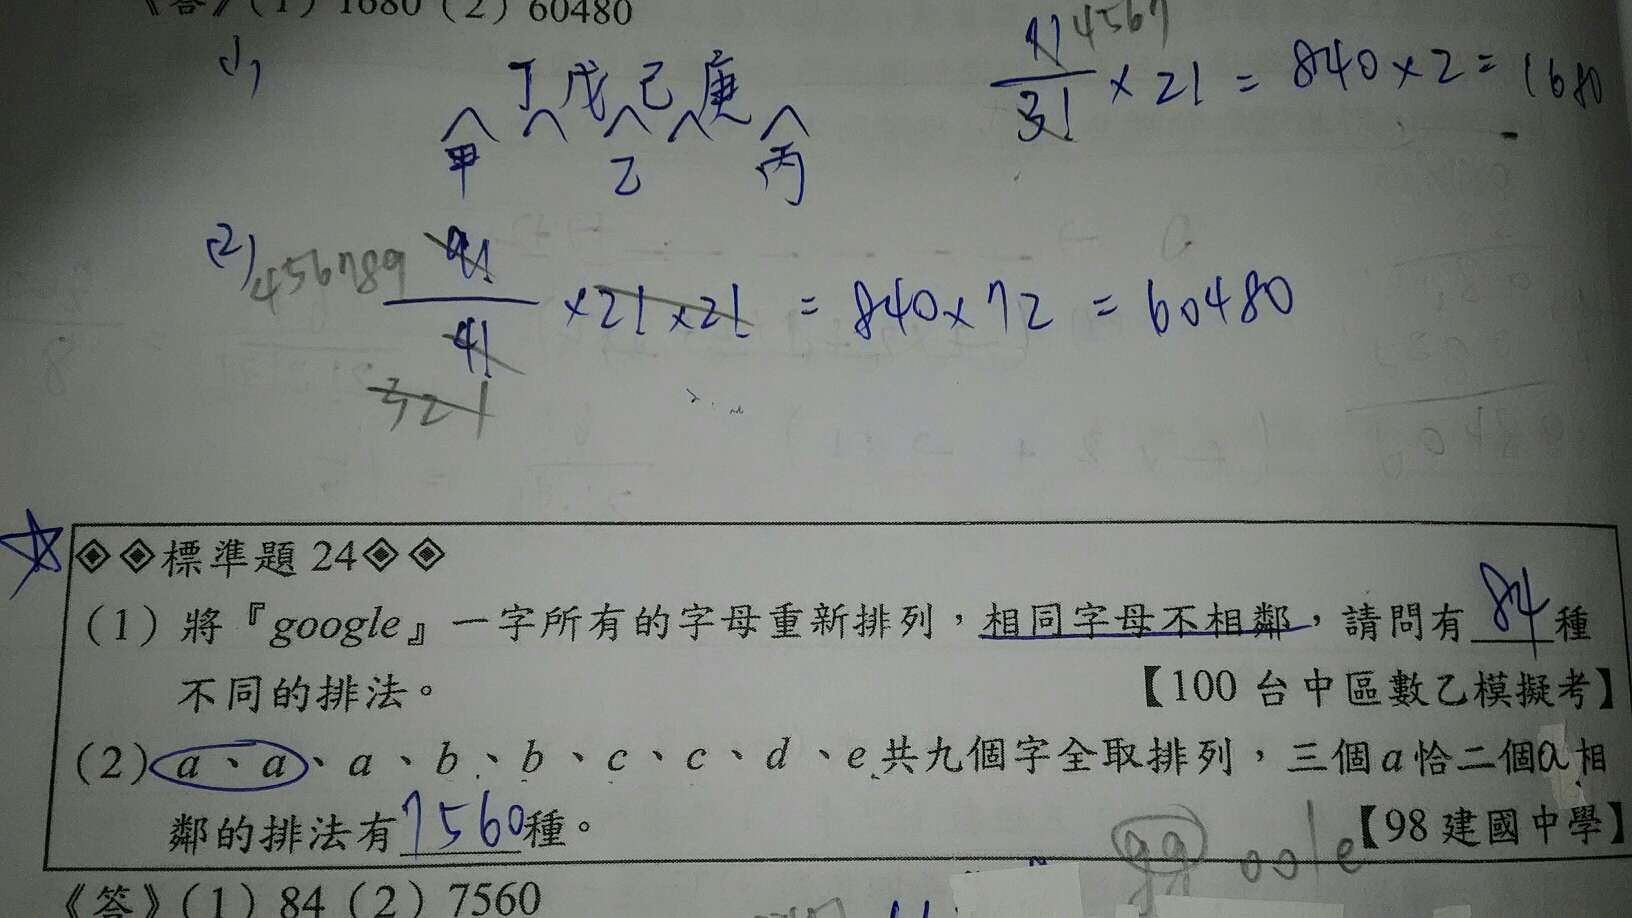 《答》(1) 1680 (2) 60480
(1)
丁戊己庚
甲 乙 丙
7! 4567
3! × 2! = 840 × 2 = 1680
(2) 456789 9!
4! × 2! × 2! = 840 × 72 = 60480
321
◈◈標準題 24◈◈
(1) 將『google』一字所有的字母重新排列，相同字母不相鄰，請問有 84 種
不同的排法。 【100 台中區數乙模擬考】
(2) a、a、a、b、b、c、c、d、e 共九個字全取排列，三個 a 恰二個 a 相
鄰的排法有 7560 種。 【98 建國中學】
gg oo l e
《答》(1) 84 (2) 7560